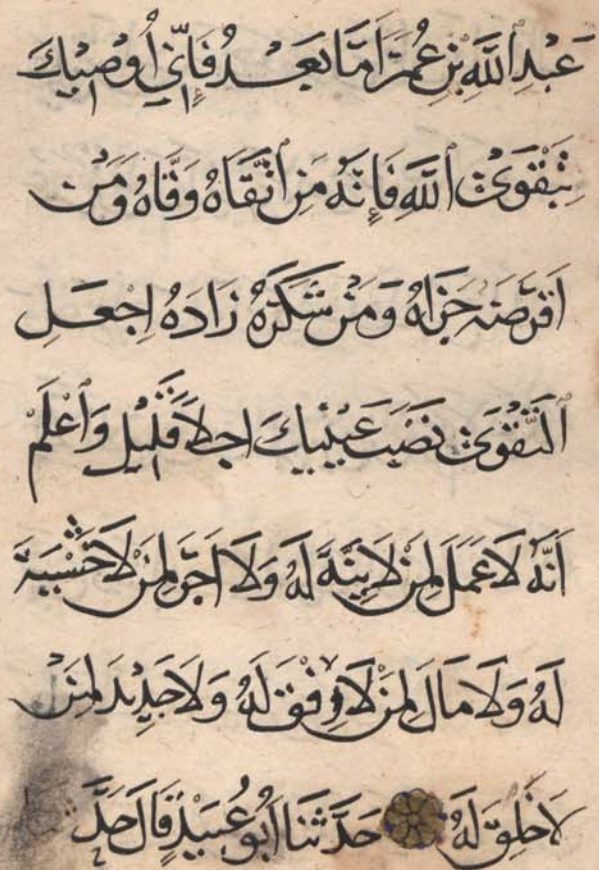 عَبْدِ اللَّهِ بْنِ عُمَرَ اَمَّا بَعْدُ فَإِنِّي أُوصِيكَ
بِتَقْوَى اللَّهِ فَإِنَّهُ مَنِ اتَّقَاهُ وَقَّاهُ وَمَنْ
اَقْرَضَهُ جَزَاهُ وَمَنْ شَكَرَهُ زَادَهُ اِجْعَلِ
التَّقْوَى نَصْبَ عَيْنَيْكَ اجلاً قَلِيل وَاعْلَمْ
اَنَّهُ لَا عَمَلَ لِمَنْ لَا نِيَّةَ لَهُ وَلَا اَجْرَ لِمَنْ لَا خَشْيَةَ
لَهُ وَلَا مَالَ لِمَنْ لَا رِفْقَ لَهُ وَلَا جَدِيدَ لِمَنْ
لَا خَلِقَ لَهُ حَدَّثَنَا اَبُو عُبَيْدٍ قَالَ حَدَّ